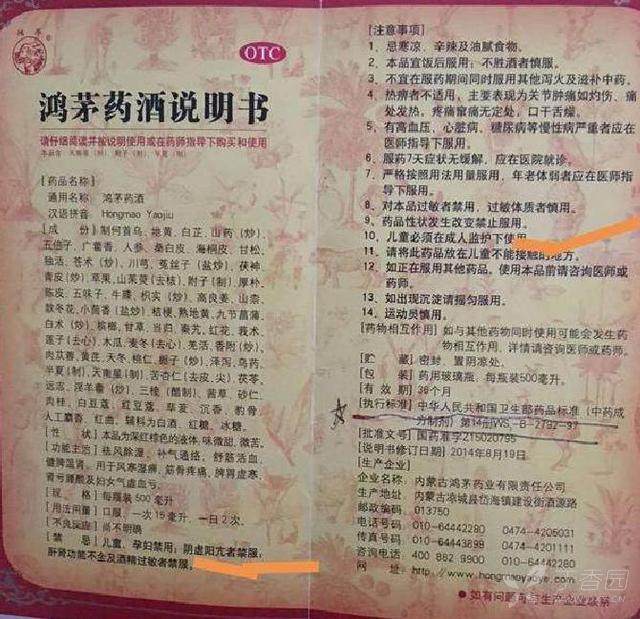 OTC
鸿茅药酒说明书
请仔细阅读并按说明使用或在药师指导下购买和使用
[药品名称]
通用名称 鸿茅药酒
汉语拼音 Hongmao Yaojiu
[成 份] 制何首乌、地黄、白芷、山药(炒)、
五倍子、广藿香、人参、桑白皮、海桐皮、甘松、
独活、苍术(炒)、川芎、菟丝子(盐炒)、茯神
青皮(炒)、草果、山茱萸(去核)、附子(制)、厚朴
陈皮、五味子、牛膝、枳实(炒)、高良姜、山柰、
款冬花、小茴香(盐炒)、桔梗、熟地黄、九节菖蒲
白术(炒)、槟榔、甘草、当归、秦艽、红花、莪术、
莲子(去心)、木瓜、麦冬(去心)、羌活、香附(炒)、
肉苁蓉、黄芪、天冬、桃仁、栀子(炒)、泽泻、乌药、
半夏(制)、天南星(制)、苦杏仁(去皮、尖)、茯苓、
远志、淫羊藿(炒)、三棱(醋制)、茜草、砂仁、
肉桂、白豆蔻、红豆蔻、荜茇、沉香、豹骨、
人工麝香、红曲。辅料为白酒、红糖、冰糖。
[性 状] 本品为深红棕色的液体,味微甜、微苦。
[功能主治] 祛风除湿,补气通络,舒筋活血,
健脾温肾。用于风寒湿痹,筋骨疼痛,脾胃虚寒,
肾亏腰酸及妇女气虚血亏。
[规 格] 每瓶装500毫升
[用法用量] 口服。一次15毫升,一日2次。
[不良反应] 尚不明确
[禁 忌] 儿童、孕妇禁用;阴虚阳亢者禁服,
肝肾功能不全及酒精过敏者禁服。
[注意事项]
1、忌寒凉、辛辣及油腻食物。
2、本品宜饭后服用;不胜酒者慎服。
3、不宜在服药期间同时服用其他泻火及滋补中药。
4、热痹者不适用,主要表现为关节肿痛如灼伤、痛
处发热,疼痛窜痛无定处,口干舌燥。
5、有高血压、心脏病、糖尿病等慢性病严重者应在
医师指导下服用。
6、服药7天症状无缓解,应在医院就诊。
7、严格按照用法用量服用,年老体弱者应在医师指
导下服用。
8、对本品过敏者禁用,过敏体质者慎用。
9、药品性状发生改变禁止服用。
10、儿童必须在成人监护下使用
11、请将此药品放在儿童不能接触的地方。
12、如正在服用其他药品,使用本品前请咨询医师或
药师。
13、如出现沉淀请摇匀服用。
14、运动员慎用。
[药物相互作用] 如与其他药物同时使用可能会发生药
物相互作用,详情请咨询医师或药师。
[贮 藏] 密封,置阴凉处。
[包 装] 药用玻璃瓶,每瓶装500毫升。
[有效期] 36个月
[执行标准] 中华人民共和国卫生部药品标准(中药成
方制剂)第14册WS3-B-2792-97
[批准文号] 国药准字Z15020795
[说明书修订日期] 2014年8月19日
[生产企业]
企业名称:内蒙古鸿茅药业有限责任公司
生产地址:内蒙古凉城县岱海镇建设街酒源路
邮政编码:013750
电话号码:010-64442280 0474-4205031
传真号码:010-64443899 0474-4201199
咨询电话:400 882 9900 010-64442280
网 址:http://www.hongmaoyaoye.com
●如有问题可与生产企业联系
香园